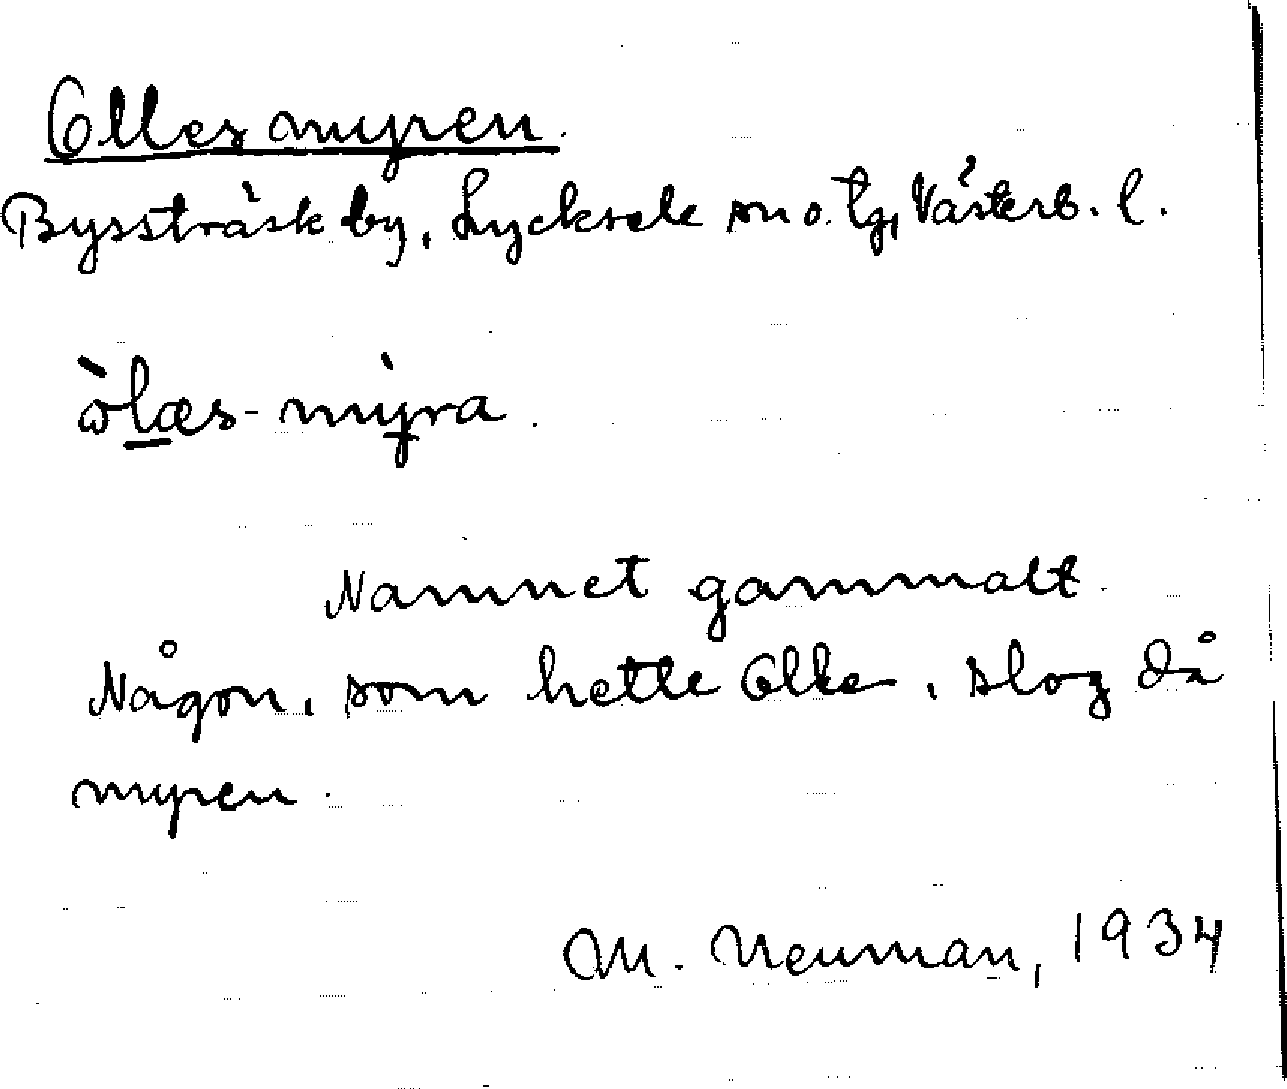 Ollesmyren.
Byssträsk by, Lycksele sn o. tg, Västerb. l.
ò̀læs-mỳra.
Namnet gammalt.
Någon, som hette Olle, slog då
myren.
M. Neuman, 1934